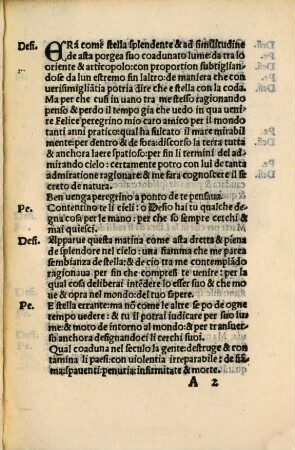 Desi. ERa come stella splendente & ad similitudine
de asta porgea suo coadunato lume: da tra lo
oriente & articopolo: con proportion subtiglian
dose da lun estremo fin laltro: de maniera che con
uerisimigliātia potria dire che e stella con la coda.
Ma per che cusi in uano tra me stesso ragionando
penso & perdo il tempo gia che uedo in qua uenir
Felice peregrino mio caro amico per il mondo
tanti anni pratico: qual ha sulcato il mare mirabil
mente: per dentro & de fora: discorso la terra tutta
& anchora laere spatioso: per fin li termini del ad
mirando cielo: certamente potro con lui de tanta
admiratione ragionare: & me fara cognoscere il se
creto de natura.
Ben uenga peregrino a ponto de te pensaua.
Pe. Contentino te li cieli: o Desio hai tu qualche de
gna cosa per le mano: per che so sempre cerchi &
mai quiesci.
Desi. Apparue questa matina come asta dretta & piena
de splendore nel cielo: una fiamma che me parea
sembianza de stella: & de cio tra me contemplādo
ragionaua per fin che compresi te uenire: per la
qual cosa deliberai intēdere lo esser suo & che mo
ue & opra nel mondo: del tuo sapere.
Pe. E stella errante: ma nō come le altre se po de ogni
tempo uedere: & tu il potrai iudicare per suo lu
me: & moto de intorno al mondo: & per transuer
so anchora designandoci li cerchi suoi.
Qual coaduna nel seculo la gente: destruge & con
tamina li paesi: con uiolentia irreparabile: de fia
ma: spauenti: penuria: infirmitate & morte.
A 2